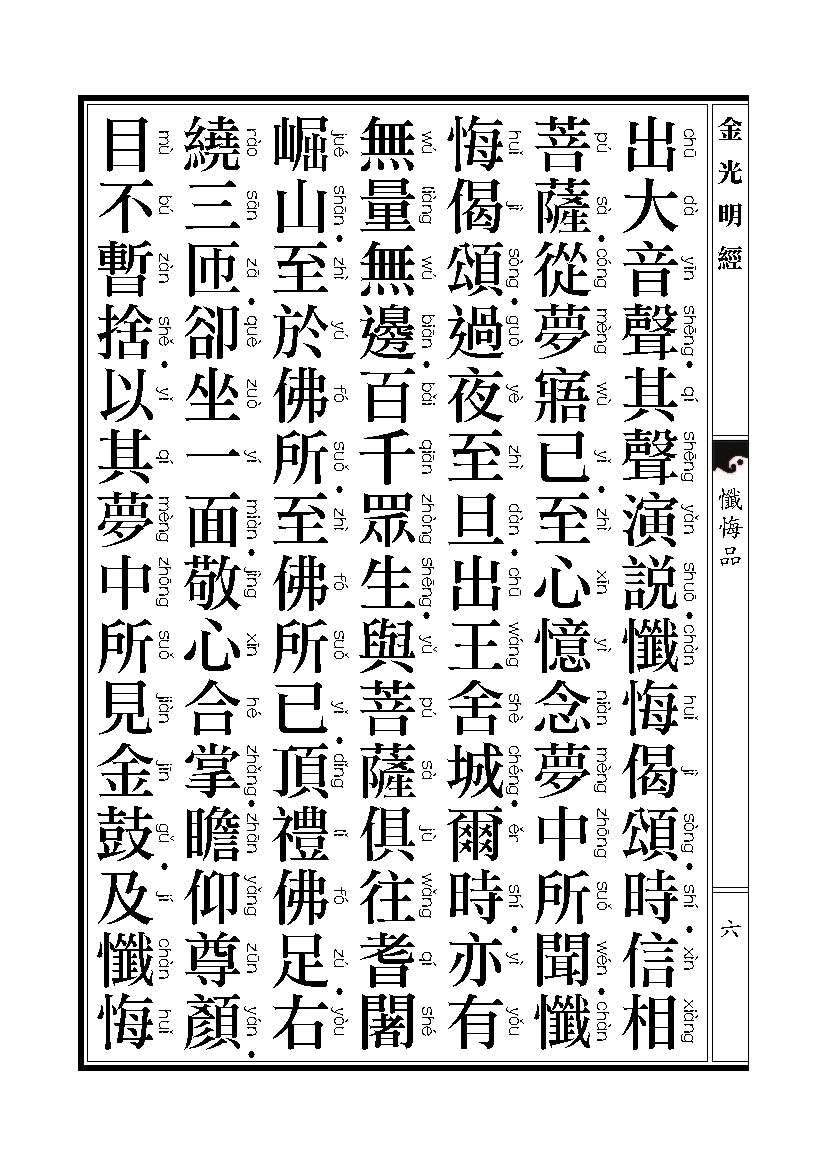 金光明經
懺悔品
六
出大音聲·其聲演説·懺悔偈頌·時·信相
chū dà yīn shēng qí shēng yǎn shuō chàn huǐ jì sòng shí xìn xiàng
菩薩·從夢寤已·至心憶念夢中所聞·懺
pú sà cóng mèng wù yǐ zhì xīn yì niàn mèng zhōng suǒ wén chàn
悔偈頌·過夜至旦·出王舍城·爾時·亦有
huǐ jì sòng guò yè zhì dàn chū wáng shè chéng ěr shí yì yǒu
無量無邊·百千眾生·與菩薩俱往耆闍
wú liàng wú biān bǎi qiān zhòng shēng yǔ pú sà jù wǎng qí shé
崛山·至於佛所·至佛所已·頂禮佛足·右
jué shān zhì yú fó suǒ zhì fó suǒ yǐ dǐng lǐ fó zú yòu
繞三匝·卻坐一面·敬心合掌·瞻仰尊顏·
rào sān zā què zuò yí miàn jìng xīn hé zhǎng zhān yǎng zūn yán
目不暫捨·以其夢中所見金鼓·及懺悔
mù bú zàn shě yǐ qí mèng zhōng suǒ jiàn jīn gǔ jí chàn huǐ